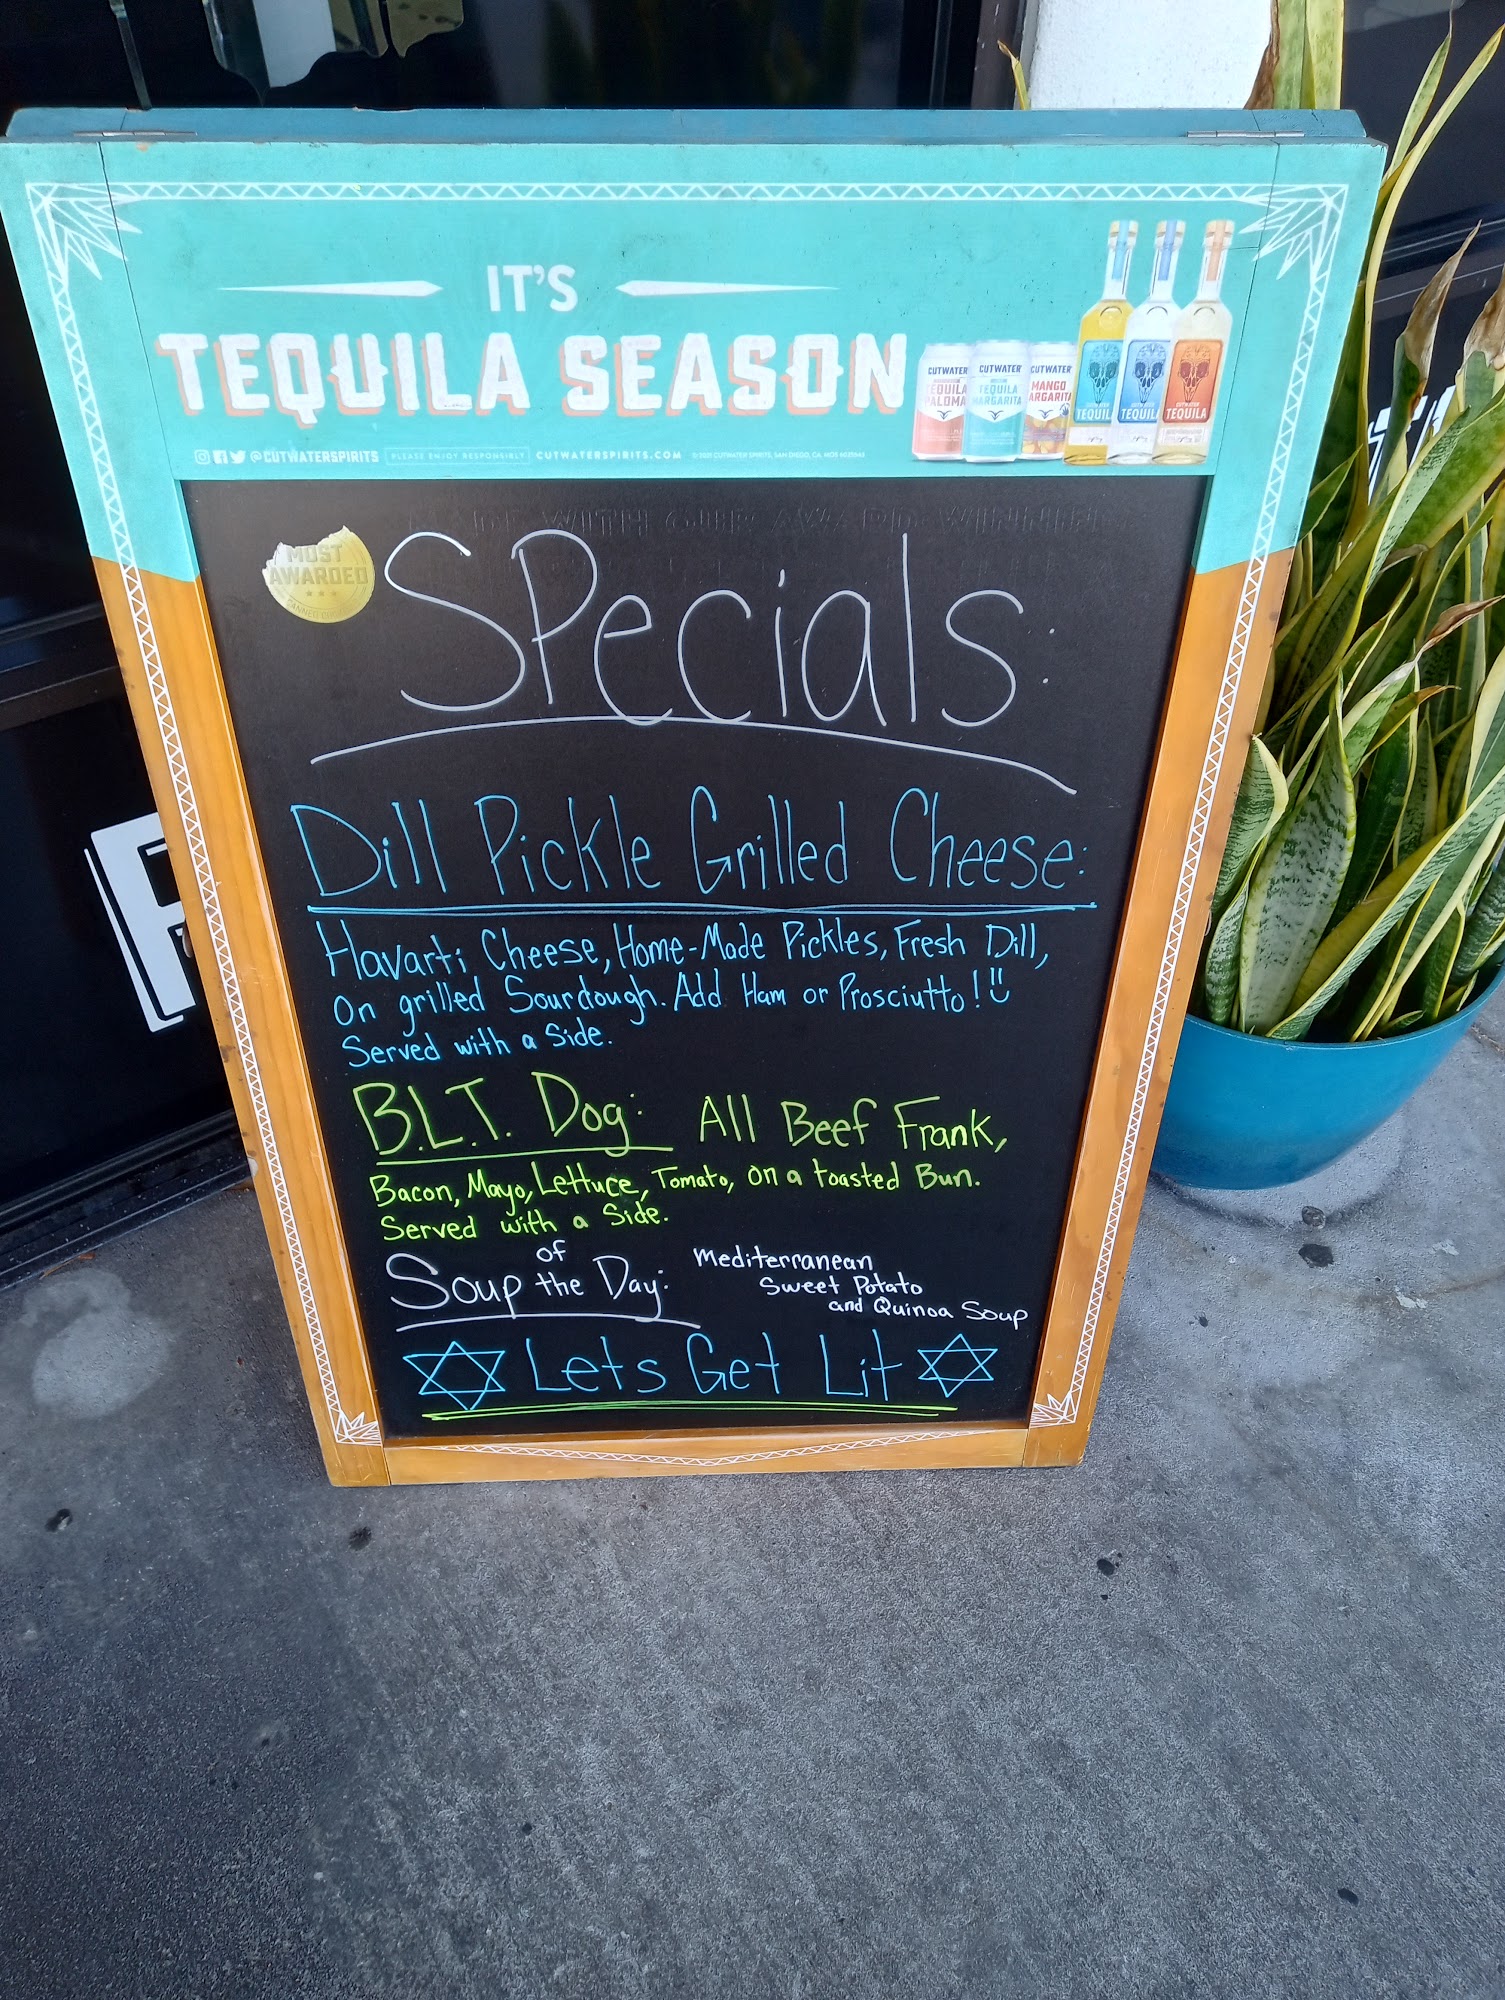 IT'S
TEQUILA SEASON
CUTWATER
TEQUILA
PALOMA
CUTWATER
TEQUILA
MARGARITA
CUTWATER
MANGO
MARGARITA
TEQUILA
TEQUILA
TEQUILA
@CUTWATERSPIRITS PLEASE ENJOY RESPONSIBLY CUTWATERSPIRITS.COM © 2021 CUTWATER SPIRITS, SAN DIEGO, CA.
MOST
AWARDED
SPecials:
Dill Pickle Grilled Cheese:
Havarti Cheese, Home-Made Pickles, Fresh Dill,
on grilled Sourdough. Add Ham or Prosciutto!
Served with a Side.
B.L.T. Dog: All Beef Frank,
Bacon, Mayo, Lettuce, Tomato, on a toasted Bun.
Served with a Side.
Soup of the Day: Mediterranean
Sweet Potato
and Quinoa Soup
Lets Get Lit